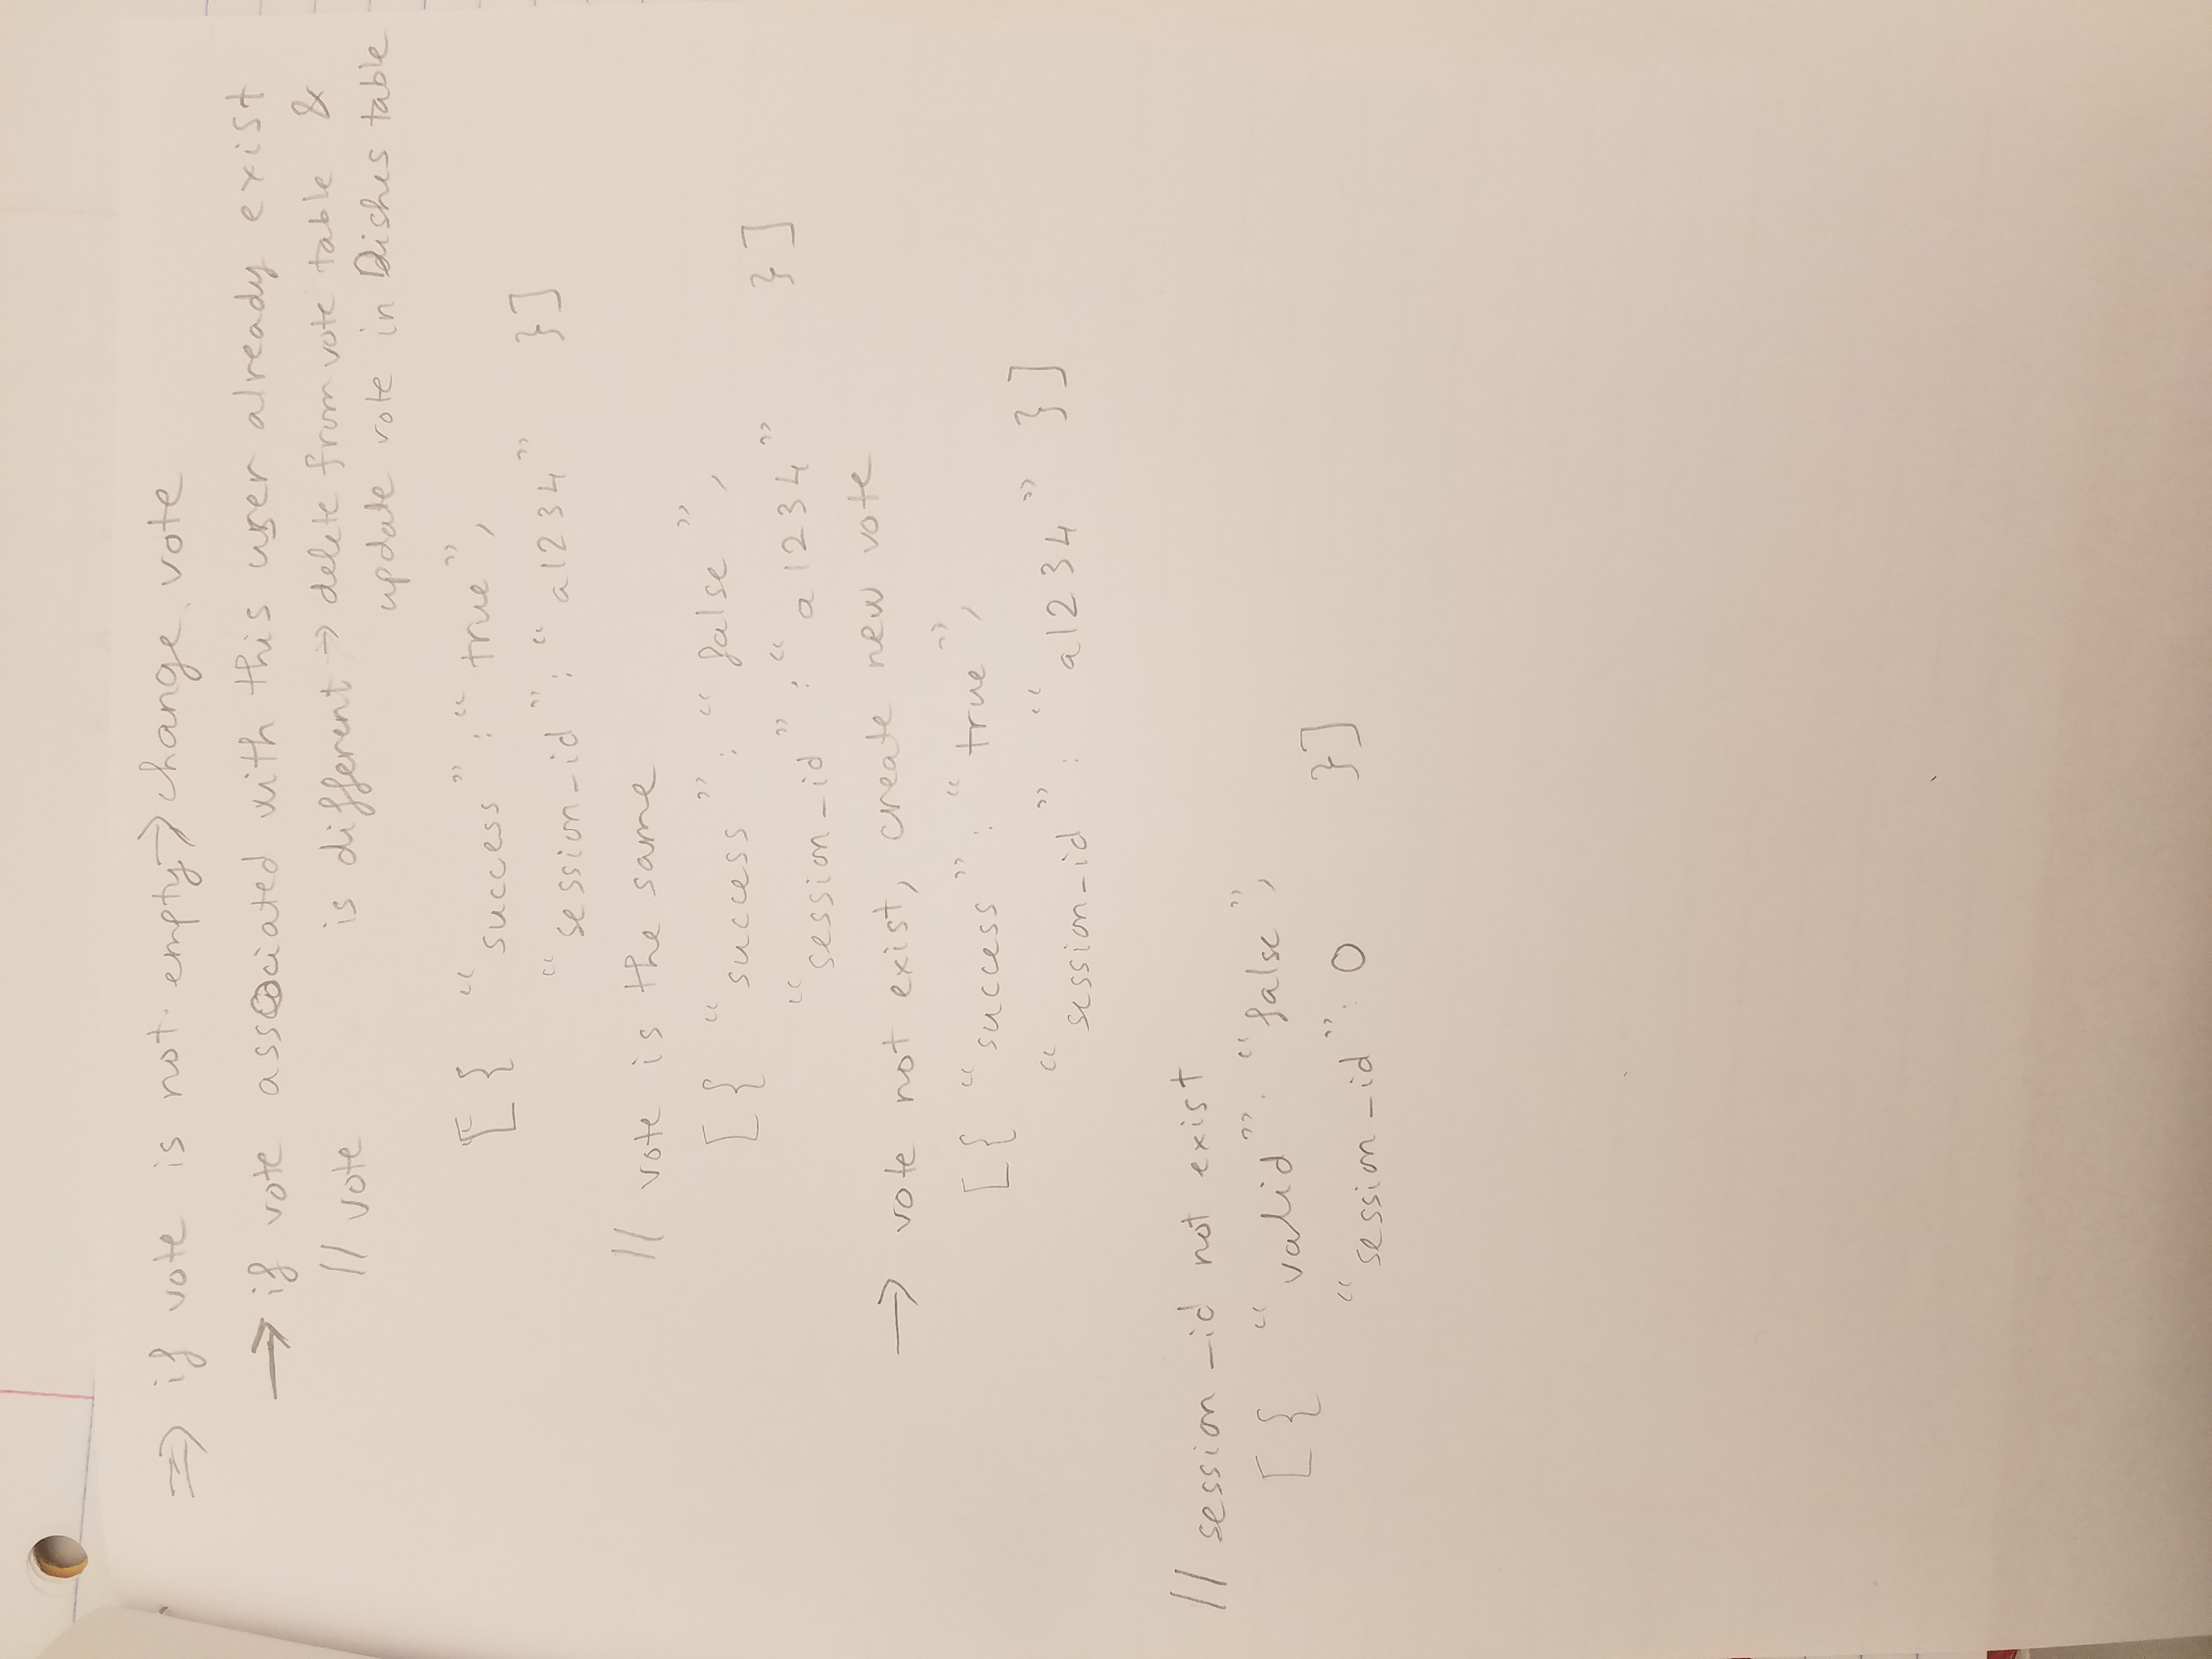 ⇒ if vote is not empty → change vote
→ if vote associated with this user already exist
// vote is different → delete from vote table &
update vote in Dishes table
[{ "success" : "true",
"session_id" : "a1234" }]
// vote is the same
[{ "success" : "false",
"session_id" : "a1234" }]
→ vote not exist, create new vote
[{ "success" : "true",
"session_id" : "a1234" }]
// session_id not exist
[{ "valid" : "false",
"session_id" : 0 }]